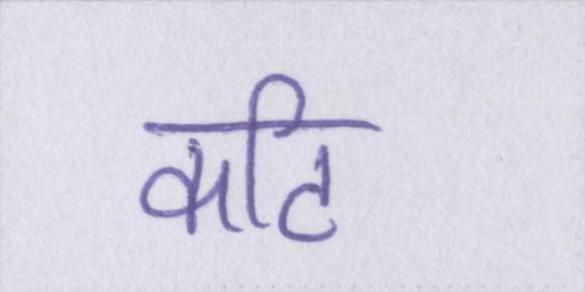 कटि